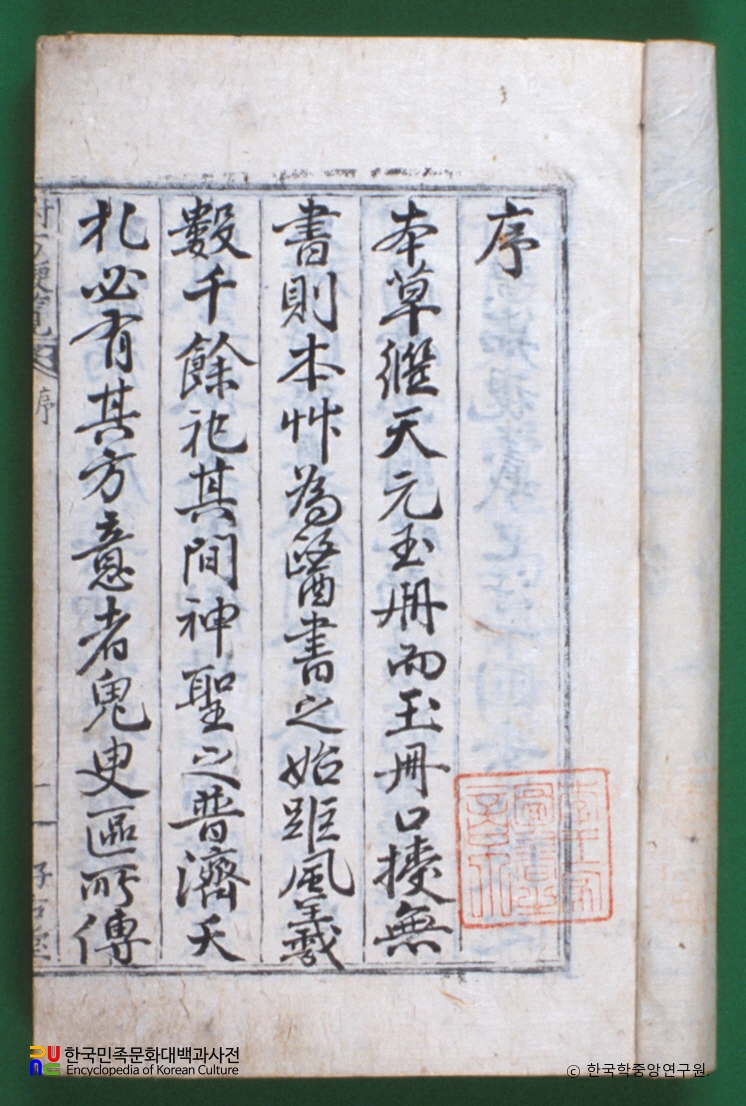 序
本草繼天元玉冊而玉冊口授無
書則本艸為醫書之始距風羲
數千餘祀其間神聖之普濟夭
札必有其方意者鬼臾區所傳
方便覽
序
一
한국민족문화대백과사전
Encyclopedia of Korean Culture
© 한국학중앙연구원